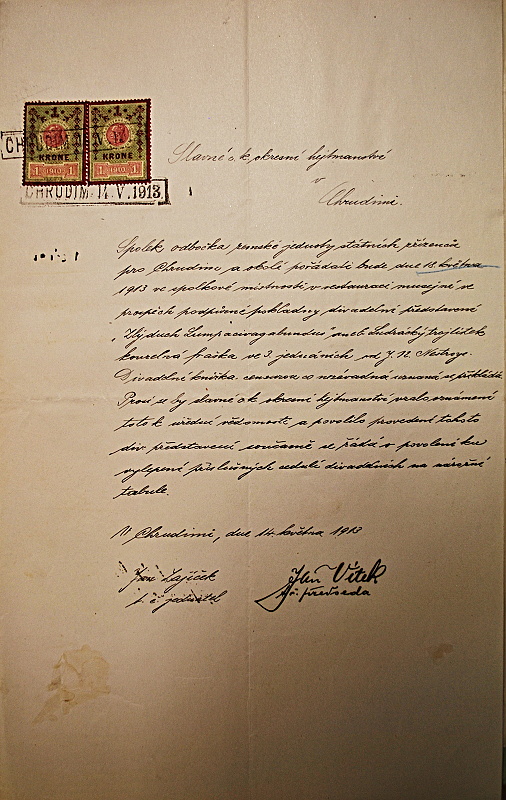 1 1
KRONE KRONE
1 1910 1 1 1910 1
CHRUDIM 14.V.1913
Slavné c. k. okresní hejtmanství
v
Chrudimi.
Spolek odbočka zemské jednoty státních zřízenců
pro Chrudim a okolí pořádati bude dne 18. května
1913 ve spolkové místnosti v restauraci musejní ve
prospěch podpůrné pokladny divadelní představení
"Zlý duch Lumpacivagabundus" aneb Ludrácký trojlístek
kouzelná fraška ve 3 jednáních od J. N. Nestroye.
Divadelní knížka censurou co nezávadná uznaná se přikládá.
Prosí se by slavné c. k. okresní hejtmanství vzalo oznámení
toto k úřední vědomosti a povolilo provedení tohoto
div. představení současně se žádá o povolení ku
vylepení příslušných cedulí divadelních na nárožní
tabule.
V Chrudimi, dne 14. května 1913
Jan Zajíček
t. č. jednatel
Jan Vítek
t. č. předseda